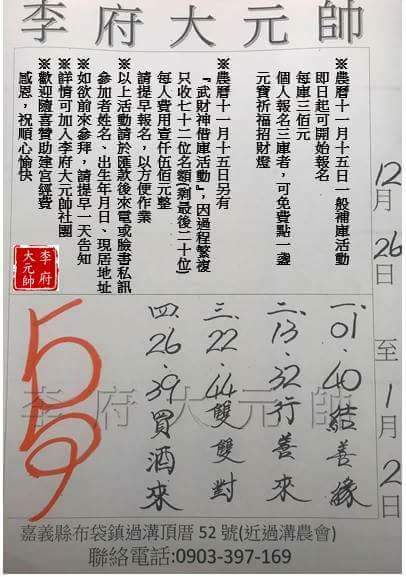 李府大元帥
※農曆十一月十五日一般補庫活動
即日起可開始報名
每庫三佰元
個人報名三庫者，可免費點一盞
元寶祈福招財燈
※農曆十一月十五日另有
『武財神借庫活動』，因過程繁複
只收七十二位名額(剩最後二十位)
每人費用壹仟伍佰元整
請提早報名，以方便作業
※以上活動請於匯款後來電或臉書私訊
參加者姓名、出生年月日、現居地址
※如欲前來參拜，請提早一天告知
※詳情可加入李府大元帥社團
※歡迎隨喜贊助建宮經費
感恩，祝順心愉快
李府
大元帥
12月26日至1月2日
一、01.40結善緣
二、13.32行善來
三、22.44雙雙對
四、26.39買酒來
李府大元帥
嘉義縣布袋鎮過溝頂厝 52 號(近過溝農會)
聯絡電話:0903-397-169